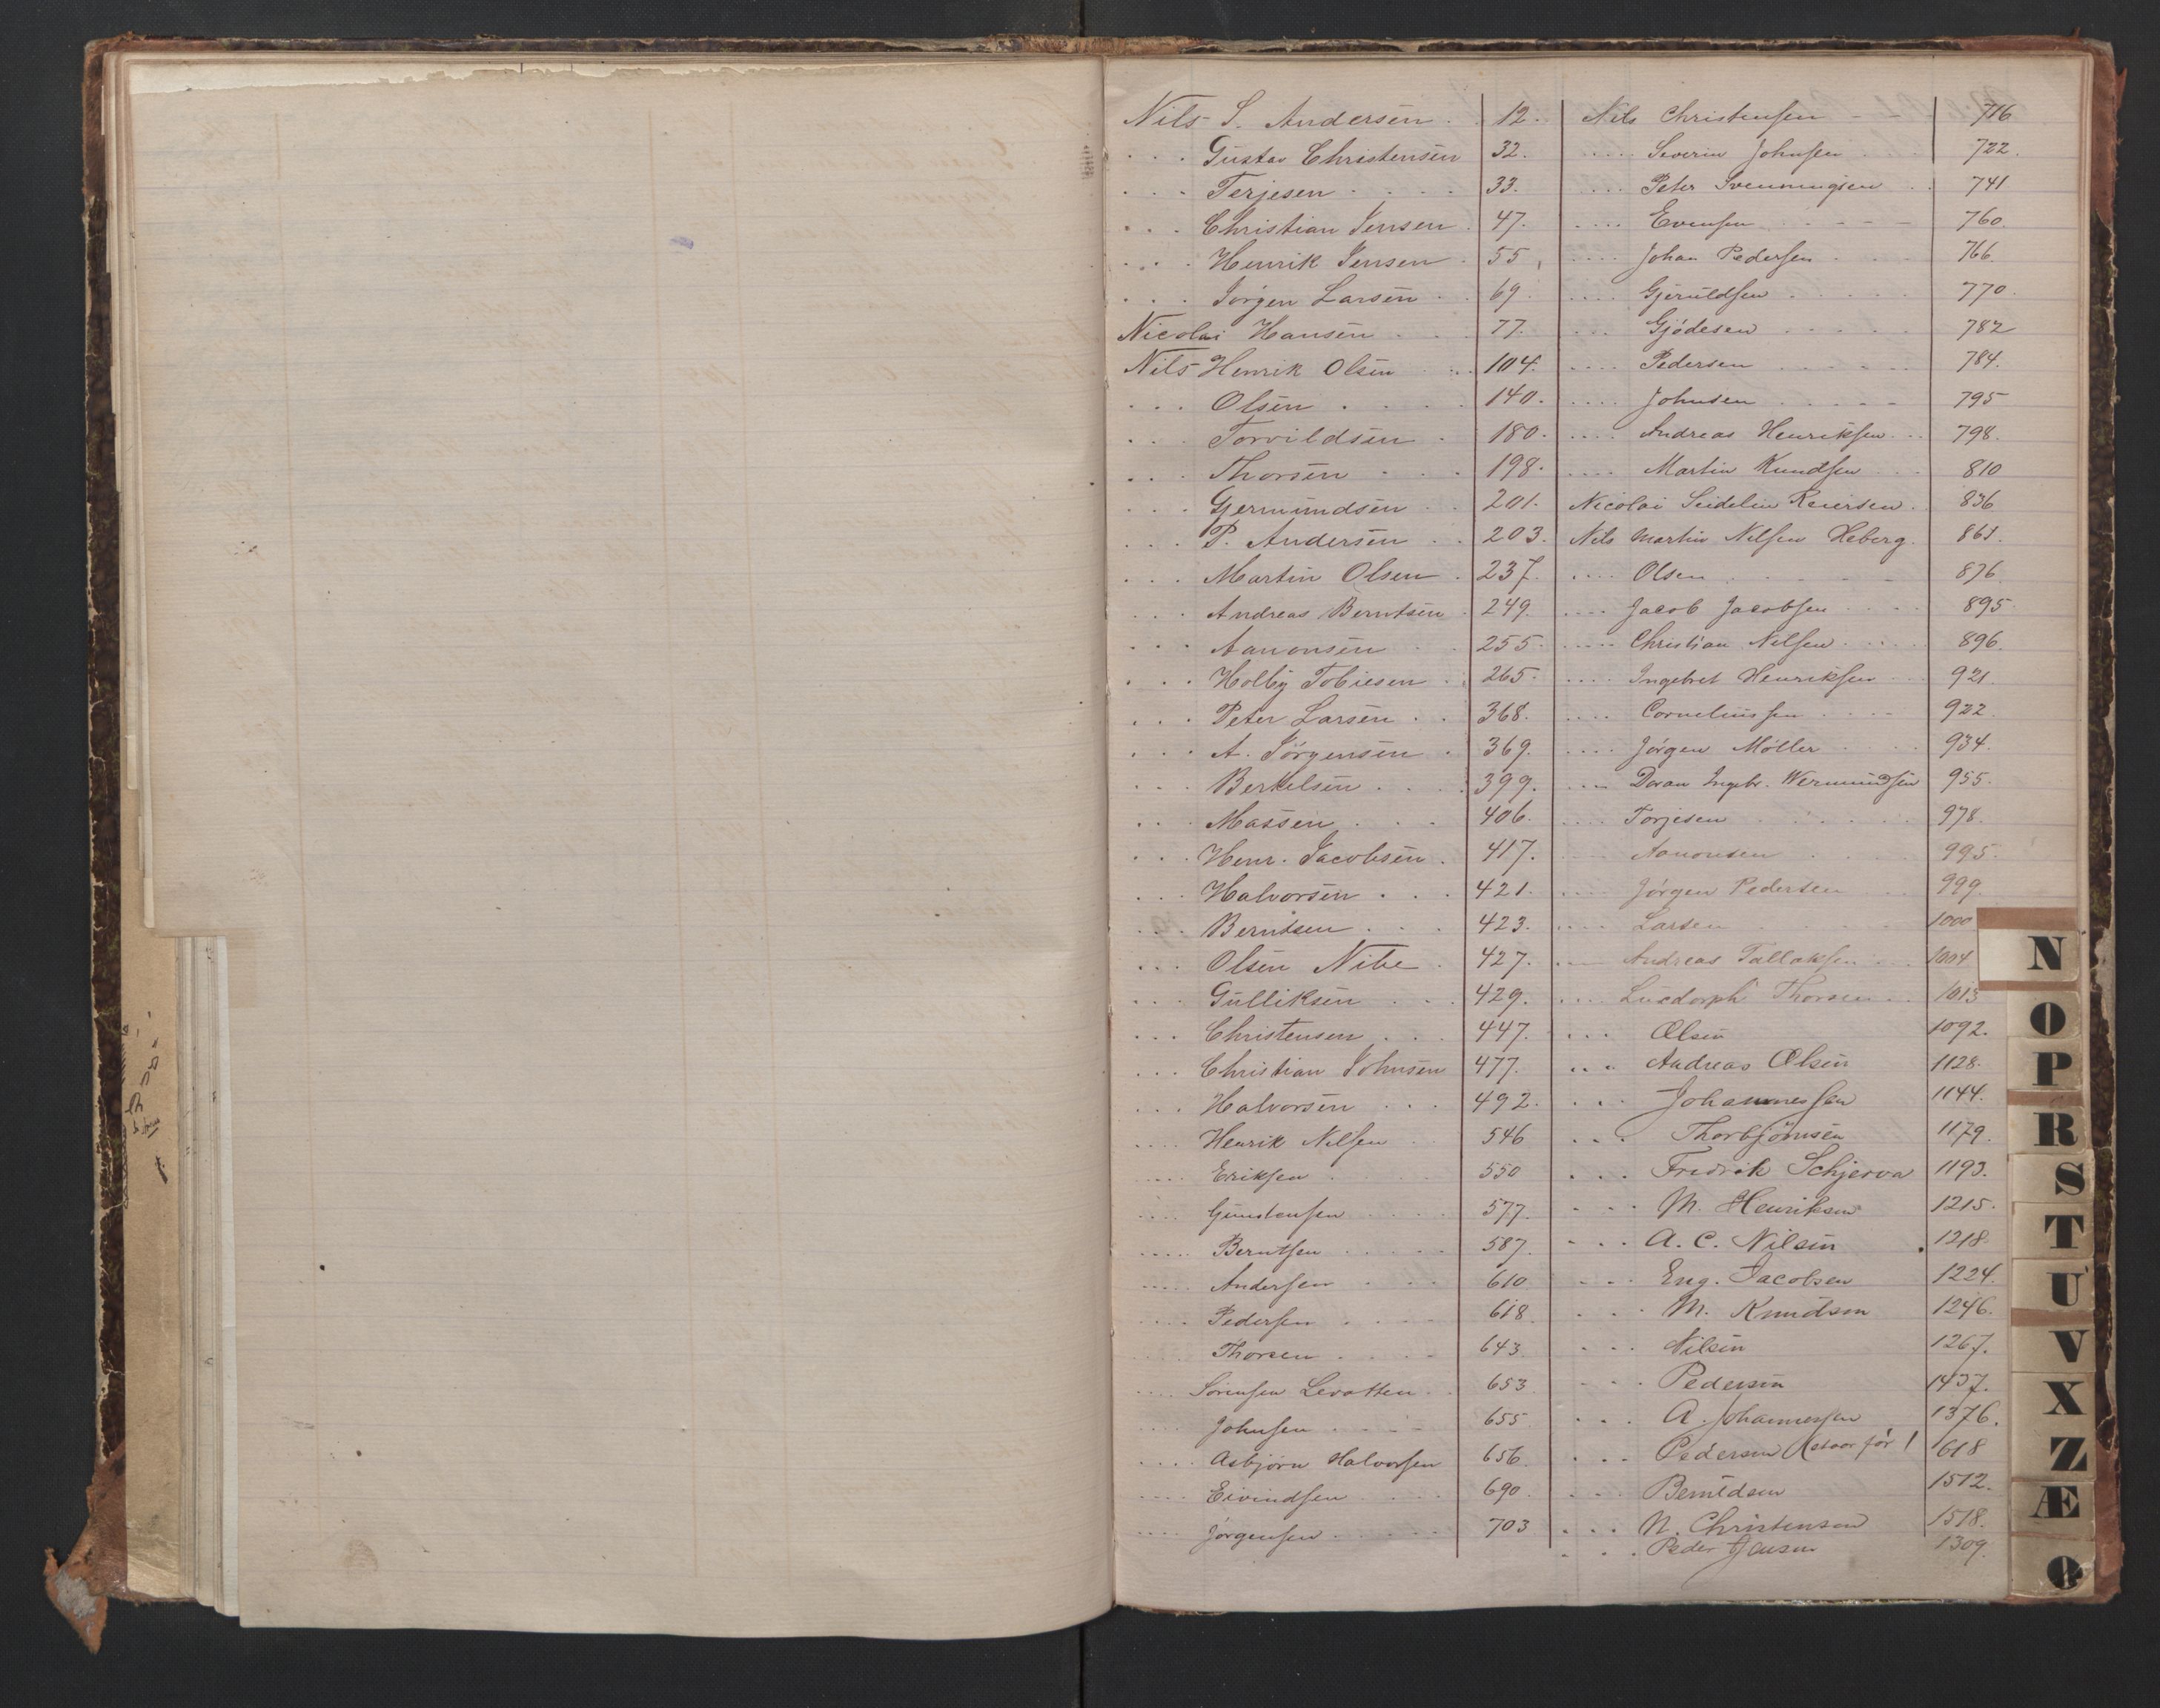 Nils S. Andersen . . 12.
. . . Gustav Christensen 32.
. . . Terjesen . . . . 33.
. . . Christian Jensen . 47.
. . . Henrik Jensen . 55
. . . Jörgen Larsen . . 69.
Nicolai Hansen . . . 77.
Nils Henrik Olsen . . 104.
. . . Olsen . . . . 140.
. . . Torvildsen . 180.
. . . Thorsen . . . 198.
. . . Gjermundsen . . 201.
. . . P. Andersen . . 203.
. . . Martin Olsen . 237.
. . . Andreas Berntsen . 249.
. . . Aanonsen . . 255.
. . . Holby Tobiesen . 265.
. . . Peter Larsen . . 368.
. . . A. Jörgensen . 369.
. . . Bertelsen . . . 399.
. . . Massen . . . 406.
. . . Henr. Jacobsen . 417.
. . . Halvorsen . . . 421.
. . . Berntsen . . . 423.
. . . Olsen Nibe . 427.
. . . Gulliksen . . . 429.
. . . Christensen . . . 447.
. . . Christian Johnsen 477.
. . . Halvorsen . . . 492.
. . . . Henrik Nilsen . 546
. . . . Eriksen . . . 550
. . . . Gundersen . . . . 577.
. . . . Berntsen . . . . . 587.
. . . . Andersen . . . . 610
. . . . Pedersen . . . . 618.
. . . . Thorsen . . . . 643.
. . . . Sörensen . . 653
. . . . Johnsen . . . . 655
. . . . Asbjörn Halvorsen 656.
. . . . Eivindsen . . . 690.
. . . . Jörgensen . . . . . 703
Nils Christensen - - 716
. . . . Severin Johnsen . . . 722.
. . . Peter Svenningsen . . 741
. . . . Evensen . . - - - 760.
. . . . Johan Pedersen . . . 766.
. . . . Gjeruldsen . . . . . 770.
. . . Gjödesen . . . . . 782
. . . . Pedersen . . . . . 784.
. . . . Johnsen . . . . . 795
. . . . Andreas Henriksen . . 798.
. . . . Martin Knudsen . . 810
Nicolai Seidelin Reiersen . 836
Nils Martin Nilsen Heberg. 861.
. . . . Olsen . . . . . 876
. . . . Jacob Jacobsen . . . . 895
. . . . . Christian Nilsen . . . . 896.
. . . . Ingebret Henriksen . . 921.
. . . . Corneliussen . . . . 922
. . . . Jörgen Möller . . . . 934.
. . . . Ingebr. Wermundsen 955.
. . . . Torjesen . . . . . . 978.
. . . . Aanonsen . . . . 995.
. . . . Jörgen Pedersen . . . 999.
. . . . Larsen . . . . . 1000
. . . Andreas Tallaksen . . . 1004
. . . . Thorsen . . . 1013
. . . Olsen 1092.
. . . Andreas Olsen 1128.
. . . Johannessen 1144.
. . . Thorbjörnsen 1179.
. . . Fredrik Schjerva 1193.
. . . M. Henriksen 1215.
. . . A. C. Nilsen . 1218
. . . Eng. Jacobsen 1224.
. . . M. Knudsen 1246.
. . . Nilsen 1267.
. . . Pedersen 1437.
. . . A. Johannessen 1376.
. . . Pedersen 1618
. . . 1512.
. . . N. Christensen 1518.
. . . Peder Jensen 1309.
N
O
P
R
S
T
U
V
X
Z
Æ
Ø